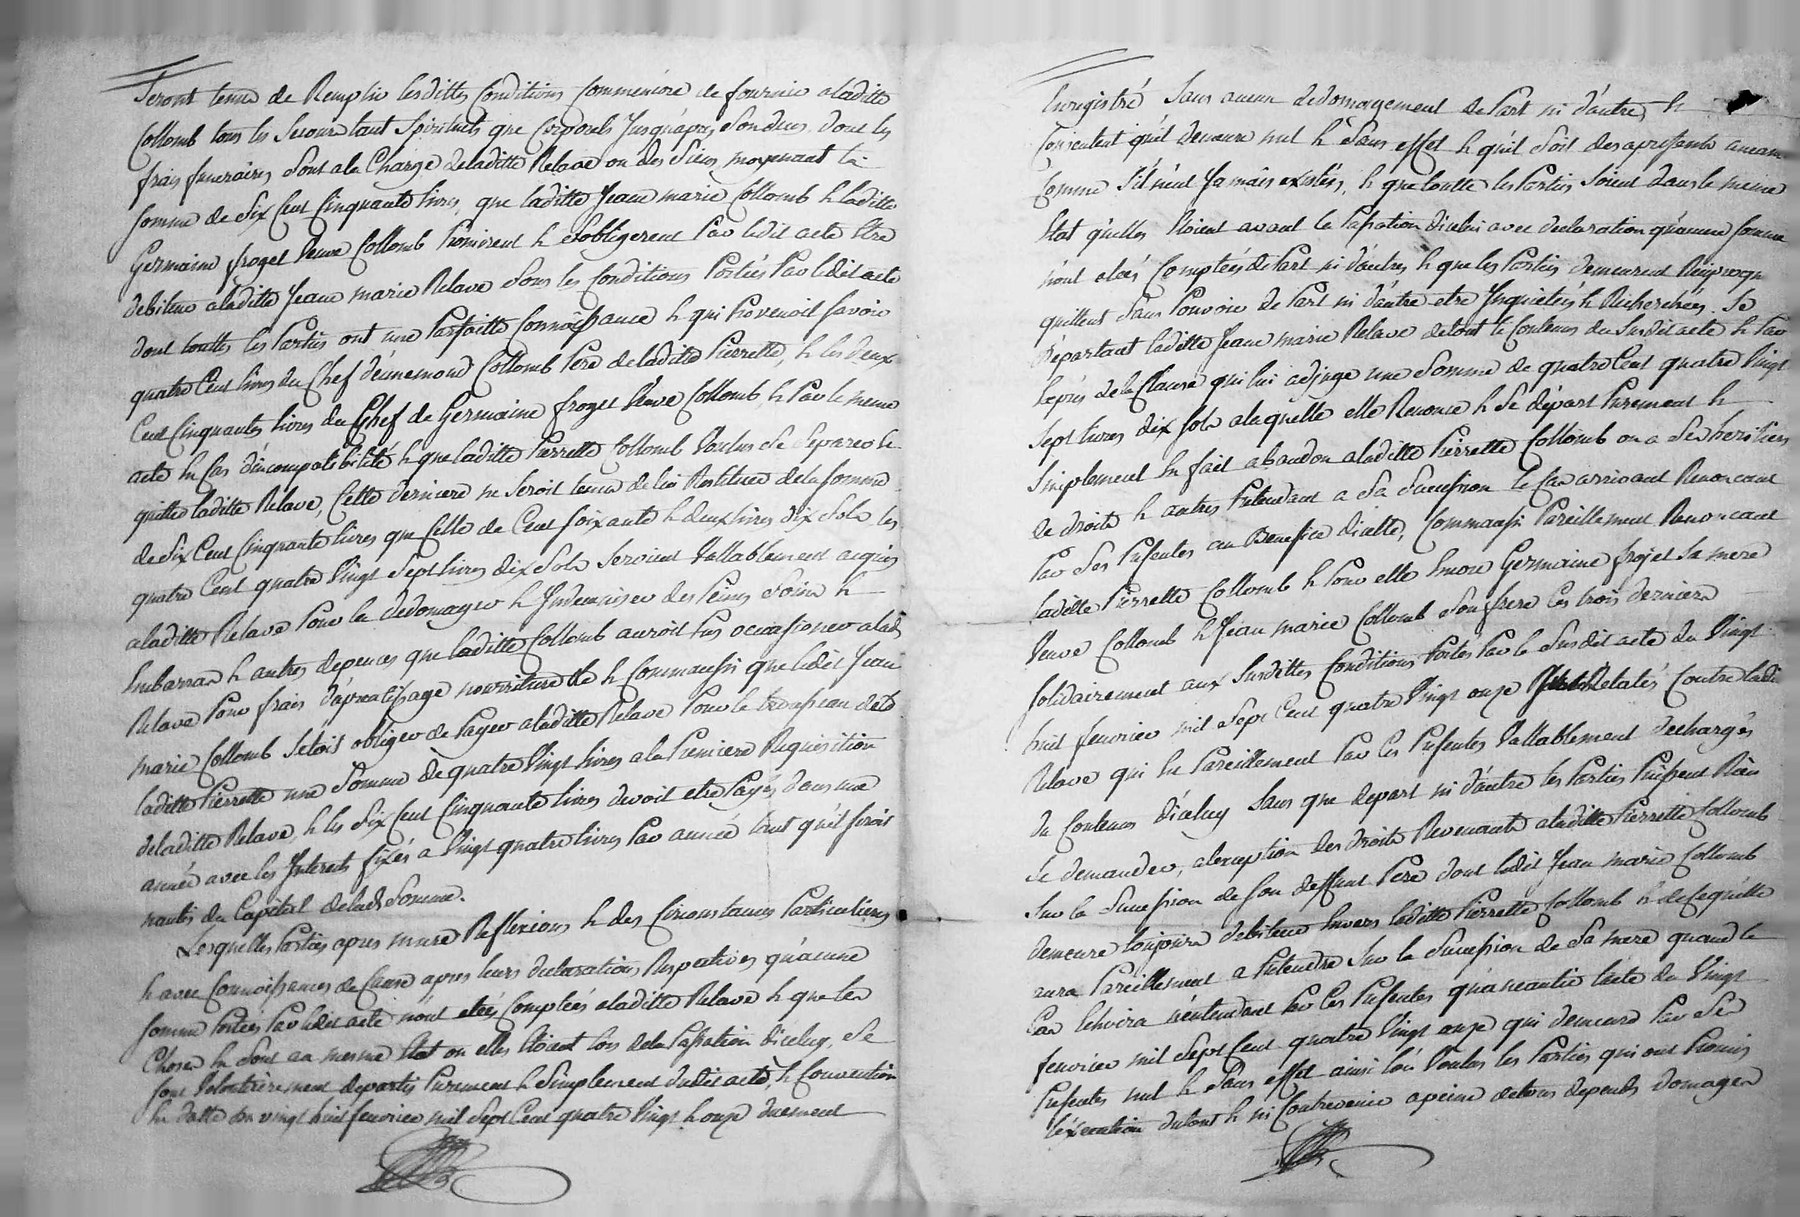 Seront tenue de Remplir lesdittes Conditions Commencéré de fournir aladitte
Collomb tous les Secours tant Spirituels que Corporels Jusquapres Son deces. dont les
frais funeraires Sont ala Charge deladitte Relave ou des Siens moyenant la
Somme de Six Cent Cinquante livres, que laditte Jeane marie Collomb h laditte
Germaine froget Veuve Collomb promirent h sobligerent Par ledit acte Etre
debiteur aladitte Jeane marie Relave Sous les Conditions Portées Par ledit acte
dont touttes les Parties ont une Parfaitte Connoissance h qui Provenoit Savoir
quatre Cent livres du Chef d'éunemond Collomb Pere deladitte Pierrette, h les deux
Cent Cinquantes livres du Chef de Germaine froget Veuve Collomb, h Par le meme
acte En Cas d'incompatibilité h que laditte Pierrette Collomb Voulus Se Separer h
quitter laditte Relave, Cette derniere ne Seroit tenue de lui Restituer dela Somme
de Six Cent Cinquante livres que Celle de Cent Soixante h deux livres dix Sols les
quatre Cent quatre Vingt Sept livres dix Sols Seroient Vallablement acquis
aladitte Relave Pour la dedomager h Indemniser des Peines Soins h
Embarras h autres depences que laditte Collomb auroit Pus occasioner alad
Relave Pour frais d'aprentissage nourriture &c h Commaussi que ledit Jean
marie Collomb Setoit obliger de Payer aladitte Relave Pour le trousseau delad
laditte Pierrette une Somme de quatre Vingt livres ala Premiere Requisition
deladitte Relave, h les Six Cent Cinquante livres devoit etre Payés dans une
année avec les Interets fixés a Vingt quatre livres Par année tant qu'il Seroit
nantis du Capital delad Somme.
Lesquelles Parties apres mure Reflexions h des Circonstances Particulieres
h avec Connoissances de Cause apres leurs declarations Respectives qu'aucune
Somme Portées Par ledit acte n'ont etées Comptées aladitte Relave h que les
Choses h Sont au mesme Etat ou elles Etoient lors dela Passation dicelluy, Se
Sont Volontairement departis Purement h Simplement dudit acte, h Convention
En datte du vingt huit fevrier mil Sept Cent quatre Vingt h onze duement
Enregistré Sans aucun dedomagement de Part ni d'autre, h
Consentent qu'il demeure nul h Sans effet h qu'il Soit des apresents aucun
Comme S'il n'eut Jamais existés, h que toutte les Parties Soient dans le meme
Etat qu'elles Etoient avant la Passation dicelui avec declaration qu'aucune Somme
n'ont etées Comptées de Part ni d'autres h que les Parties demeurent Reciproq
quittent Sans Pouvoir de Part ni d'autre etre Inquietés h Recherchées. Se
départant laditte Jeane marie Relave detout le Contenus du Susdit acte h Par
Exprès de la Clause qui lui adjuge une Somme de quatre Cent quatre Vingt
Sept livres dix Sols alaquelle elle Renonce h Se départ Purement h
Simplement En fait abandon aladitte Pierrette Collomb ou a Ses heritiers
de droits h autres Pretendant a Sa Succession le Cas arrivant Renoncant
Par Ses Presentes au Benefice dicelle, Commaussi Pareillement Renoncant
laditte Pierrette Collomb h Pour elle Encore Germaine froget Sa mere
Veuve Collomb h Jean marie Collomb Son frere Ces trois derniers
Solidairement aux Susdittes Conditions Portés Par le Susdit acte du Vingt
huit fevrier mil Sept Cent quatre Vingt onze Relatés Contre ladit
Relave qui En Pareillement Par Ces Presentes Vallablement dechargés
du Contenus D'icelluy Sans que depart ni d'autre les Parties Puissent Rien
Se demander, alexception des droits Revenants aladitte Pierrette Collomb
Sur la Succession de Son deffunt Pere dont ledit Jean marie Collomb
demeure toujours debiteur Envers laditte Pierrette Collomb h de Cequ'elle
aura Pareillement a Pretendre Sur la Succession de Sa mere quand le
Cas Echoira n'entendant Par Ces Presentes qu'aneantir lacte du Vingt
fevrier mil Sept Cent quatre Vingt onze qui demeure Par Ses
Presentes nul h Sans effet ainsi l'on Voulus les Parties qui ont Promis
l'éxecution dutout h ni Contrevenir apeine detous depents domages